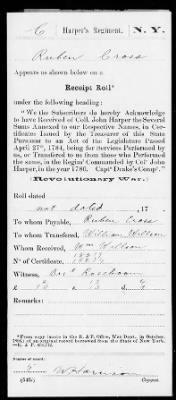 C Harper's Regiment. N. Y.
Ruben Cross
Appears as shown below on a
Receipt Roll*
under the following heading:
"We the Subscribers do hereby Acknowledge
to have Received of Coll. John Harper the Several
Sums Annexed to our Respective Names, in Cer-
tificates Issued by the Treasurer of this State
Pursuant to an Act of the Legislature Passed
April 27th, 1784, being for Services Performed by
us, or Transfered to us from those who Performed
the same, in the Regimt Commanded by Col John
Harper, in the year 1780. Capt Drake's Compy."
(Revolutionary War.)
Roll dated
not dated, 17
To whom Payable, Ruben Cross
To whom Transfered, William Willson
When Received, Wm Willson
No of Certificate,
Witness, Roseboom
Remarks:
*From copy (made in the R. & P. Office, War Dept., in October,
of an original record borrowed from the State of New York.
Harrison
(545) Copyist.